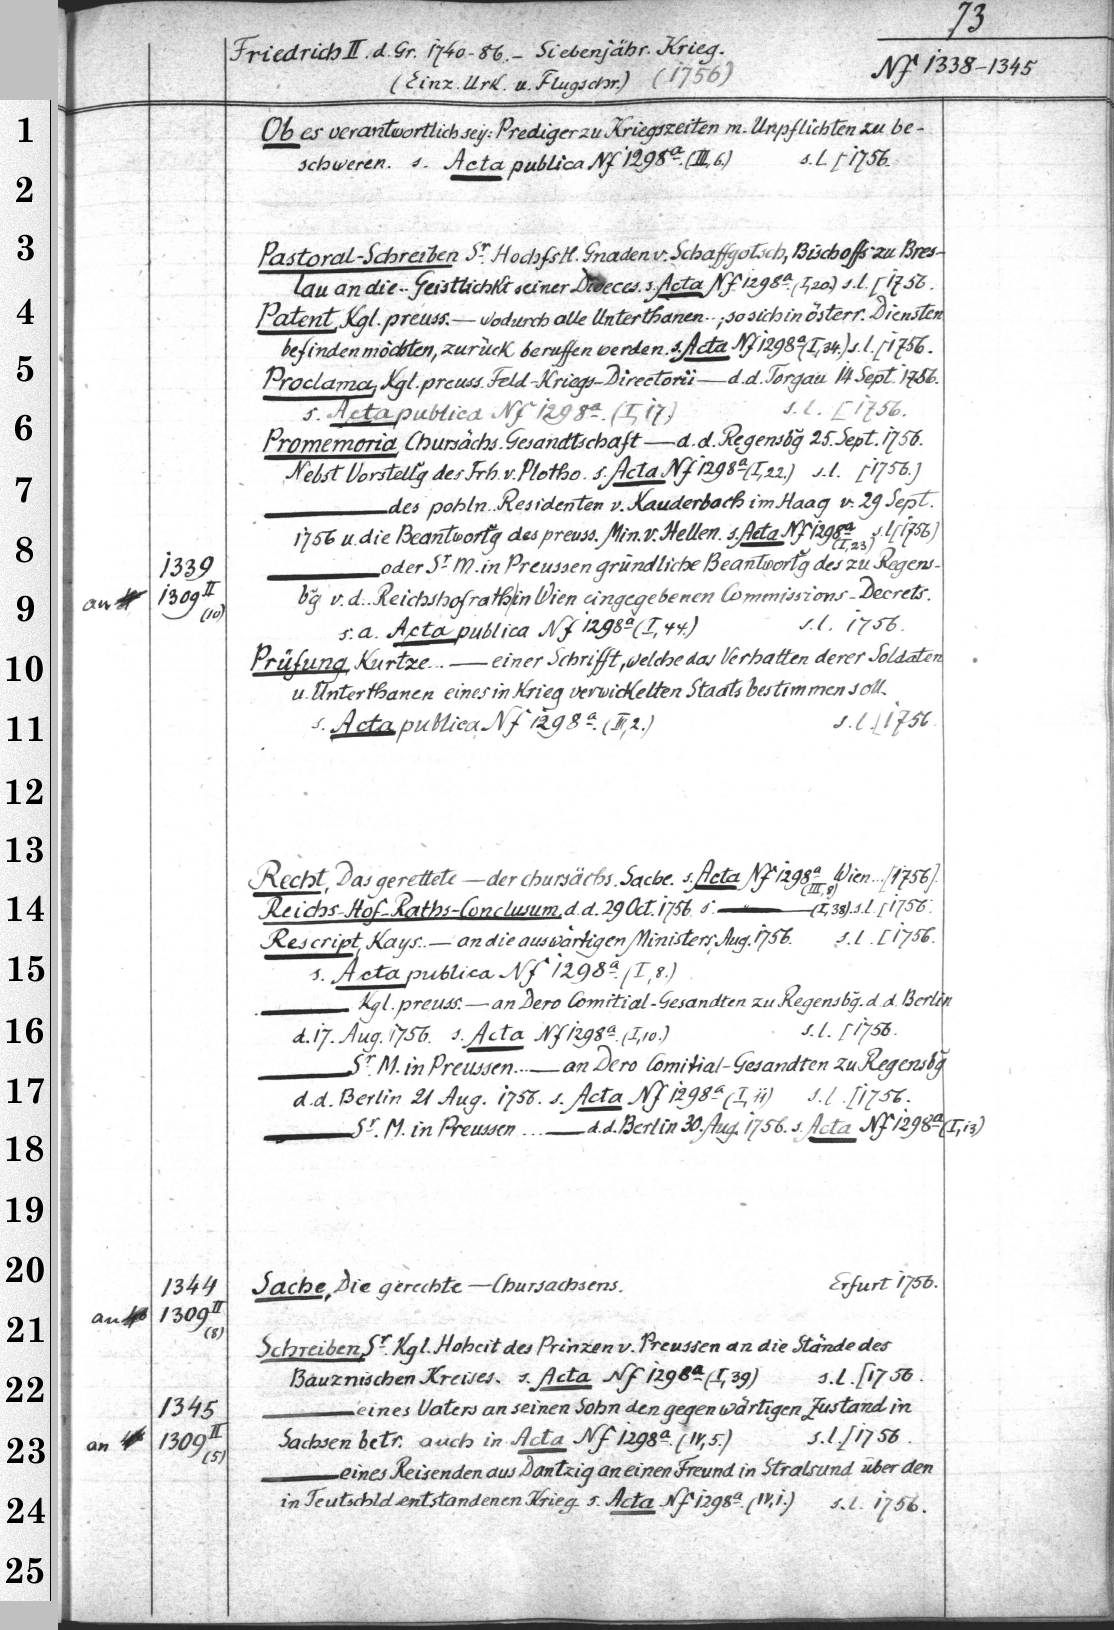 73
Friedrich II. d. Gr. 1740-86. – Siebenjähr. Krieg.
(Einz. Urk. u. Flugschr.) (1756)
Nf 1338-1345
Ob es verantwortlich sey: Prediger zu Kriegszeiten m. Unpflichten zu be-
schweren. s. Acta publica Nf 1298a. (III, 6.) s. l. [1756.
Pastoral-Schreiben Sr. Hochfstl. Gnaden v. Schaffgotsch, Bischoffs zu Bres-
lau an die .. Geistlichkt seiner Dioeces. s. Acta Nf. 1298a. (I, 20.) s. l. [1756.
Patent, Kgl. preuss. — wodurch alle Unterthanen .., so sich in österr. Diensten
befinden möchten, zurück beruffen werden. s. Acta Nf 1298a (I, 34.) s. l. [1756.
Proclama, Kgl. preuss. Feld-Kriegs-Directorii — d. d. Torgau 14 Sept. 1756.
s. Acta publica Nf 1298a. (I, 17.) s. l. [1756.
Promemoria Chursächs. Gesandtschaft — d. d. Regensbg 25. Sept. 1756.
Nebst Vorstellg des Frh. v. Plotho. s. Acta Nf 1298a (I, 22.) s. l. [1756.]
——— des pohln.. Residenten v. Kauderbach im Haag v. 29 Sept.
1756 u. die Beantwortg des preuss. Min. v. Hellen. s. Acta Nf 1298a (I, 23) s. l [1756]
1339 ——— oder Sr. M. in Preussen gründliche Beantwortg des zu Regens-
an 1309 II (10) bg v. d.. Reichshofrath in Wien eingegebenen Commissions-Decrets.
s. a. Acta publica Nf 1298a (I, 44.) s. l. 1756.
Prüfung, Kurtze... — einer Schrifft, welche das Verhatten derer Soldaten
u. Unterthanen eines in Krieg verwickelten Staats bestimmen soll.
s. Acta publica Nf 1298a. (III, 2.) s. l. [1756
Recht, Das gerettete — der chursächs. Sache. s. Acta Nf 1298a (III, 8) Wien... [1756].
Reichs-Hof-Raths-Conclusum d. d. 29 Oct. 1756 s. — " — (I, 38). s. l. [1756.
Rescript, Kays.. — an die auswärtigen Ministers, Aug. 1756. s. l. [1756.
s. Acta publica Nf 1298a. (I, 8.)
——— Kgl. preuss. — an Dero Comitial-Gesandten zu Regensbg. d. d. Berlin
d. 17. Aug. 1756. s. Acta Nf 1298a. (I, 10.) s. l. [1756.
——— Sr. M. in Preussen... — an Dero Comitial-Gesandten zu Regensbg
d. d. Berlin 21 Aug. 1756. s. Acta Nf 1298a (I, 11) s. l. [1756.
——— Sr. M. in Preussen ... — d. d. Berlin 30. Aug. 1756. s. Acta Nf 1298a (I, 13)
1344 Sache, Die gerechte — Chursachsens. Erfurt 1756.
an 1309 II (8)
Schreiben, Sr. Kgl. Hoheit des Prinzen v. Preussen an die Stände des
Bauznischen Kreises. s. Acta Nf 1298a (I, 39) s. l. [1756.
1345 ——— eines Vaters an seinen Sohn den gegenwärtigen Zustand in
an 1309 II (5) Sachsen betr. auch in Acta Nf 1298a. (IV, 5.) s. l. [1756
——— eines Reisenden aus Dantzig an einen Freund in Stralsund über den
in Teutschld entstandenen Krieg s. Acta Nf 1298a. (IV, 1.) s. l. 1756.
1
2
3
4
5
6
7
8
9
10
11
12
13
14
15
16
17
18
19
20
21
22
23
24
25